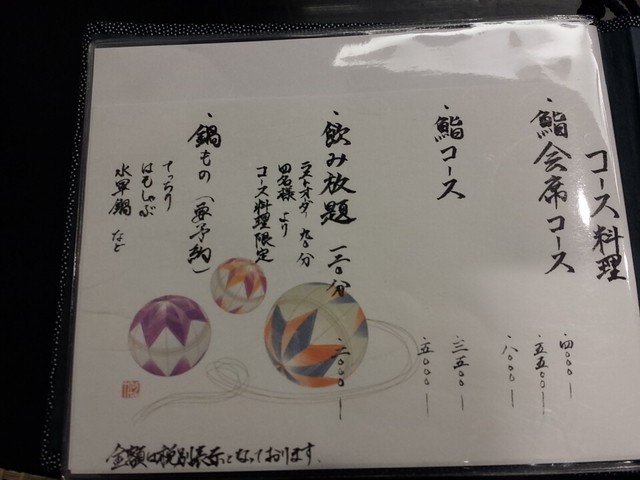 コース料理
・鮨会席コース
四〇〇〇ー
五五〇〇ー
八〇〇〇ー
・鮨コース
三五〇〇ー
五〇〇〇ー
・飲み放題 一二〇分
二〇〇〇ー
ラストオーダー九〇分
四名様より
コース料理限定
・鍋もの（要予約）
てっちり
はもしゃぶ
水軍鍋 など
金額は税別表示となっております。